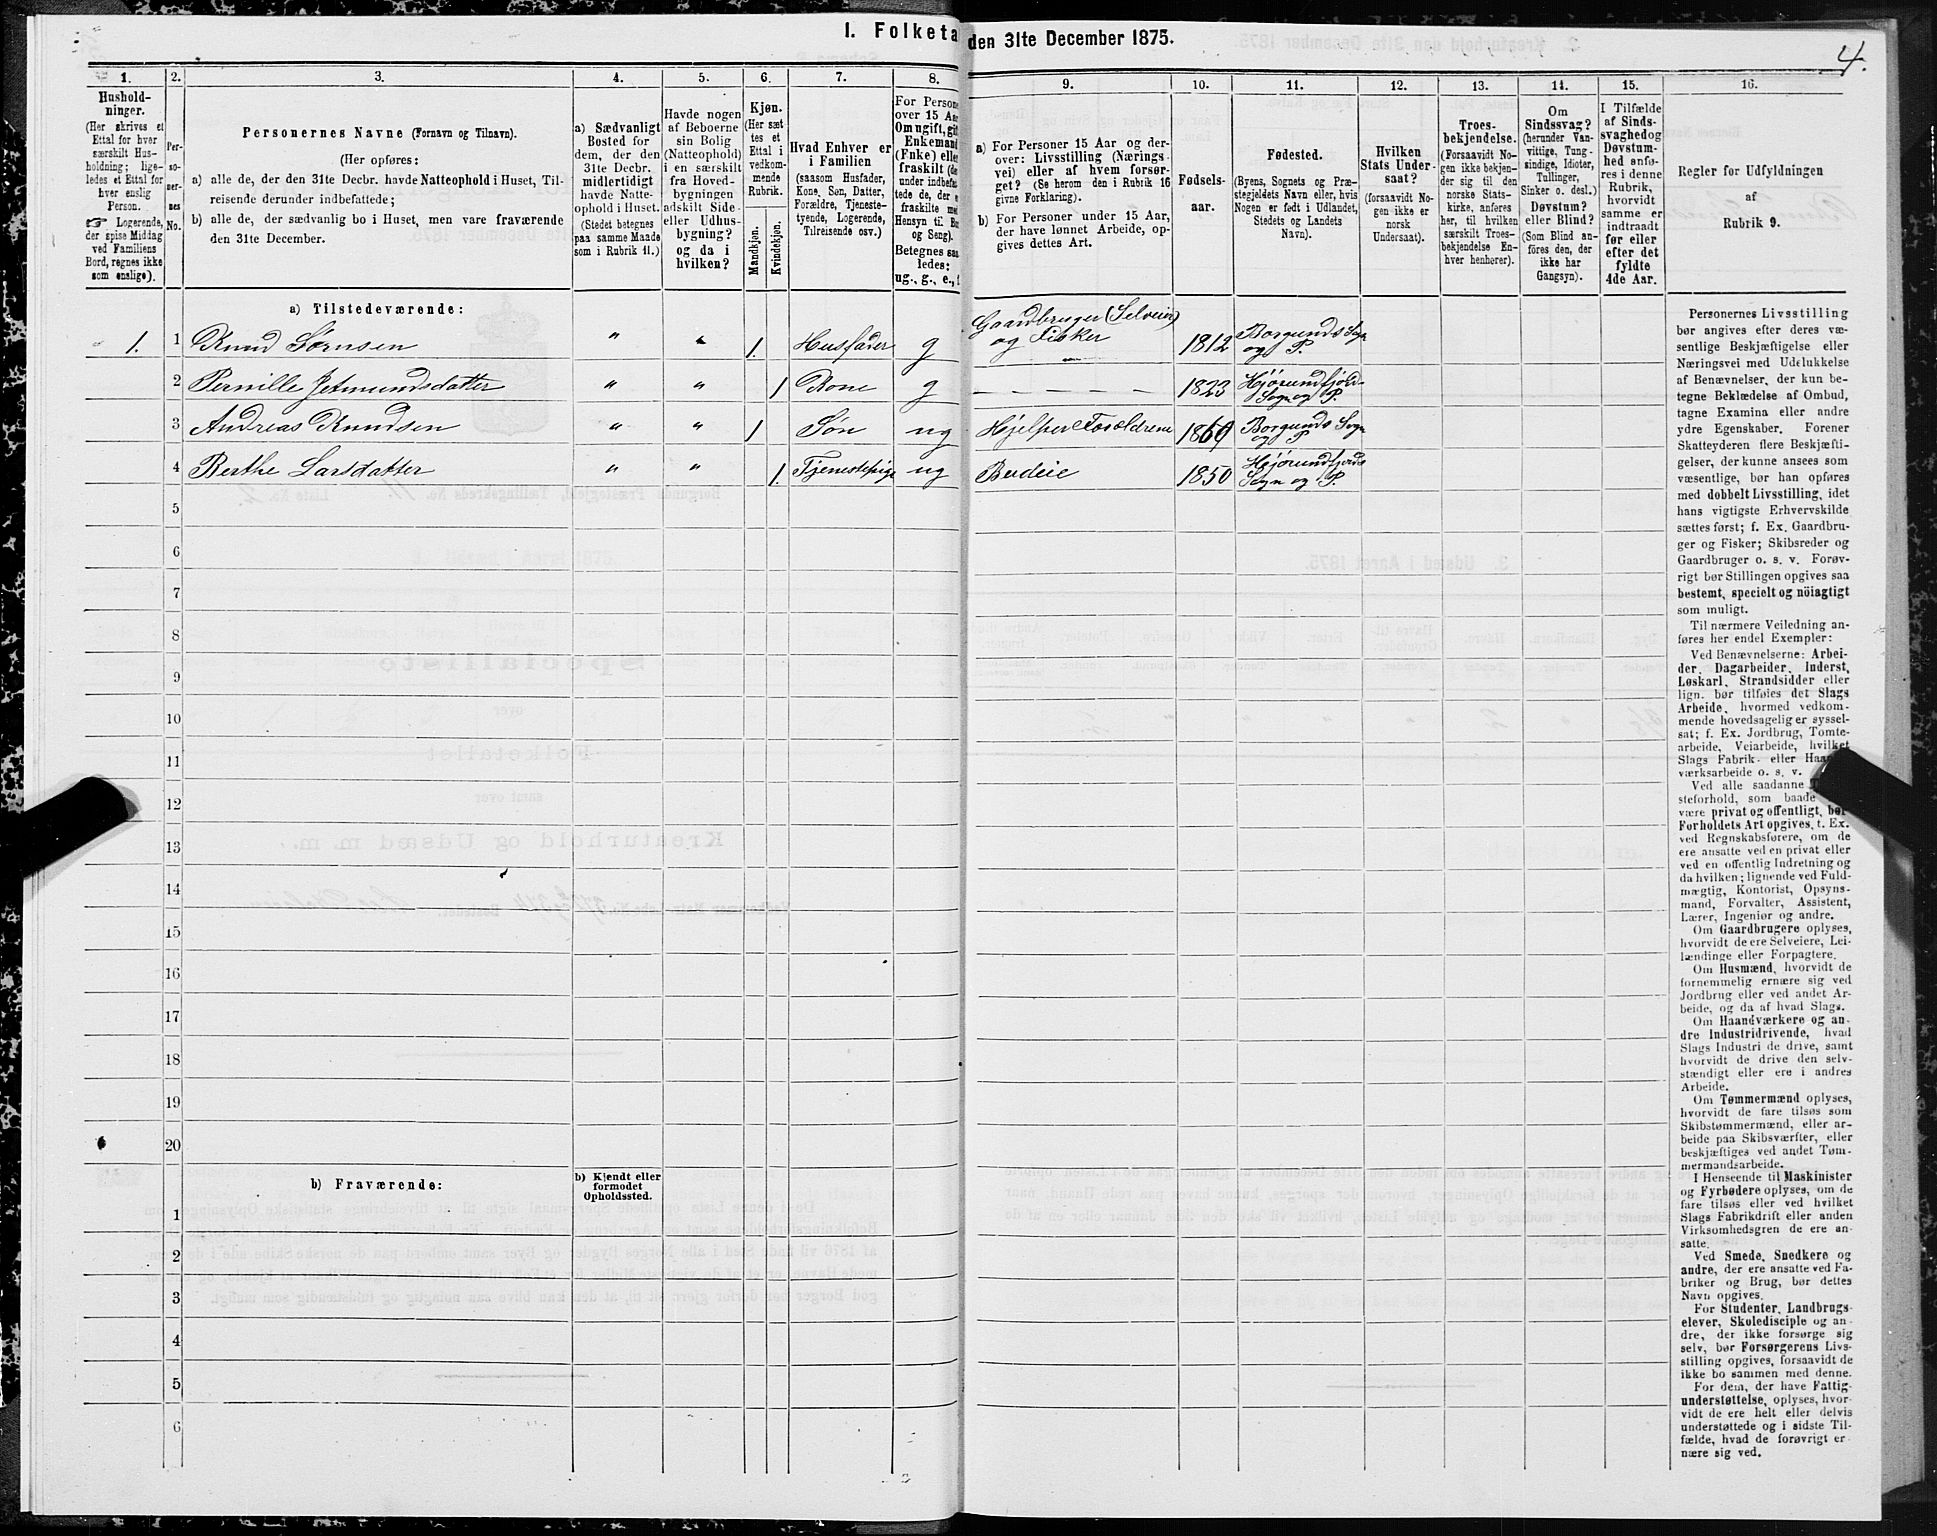 I. Folketa den 31te December 1875.
4.
1.
Hushold-
ninger.
(Her skrives et
Ettal for hver
særskilt Hus-
holdning; lige-
ledes et Ettal for
hver enslig
Person.
☞ Logerende,
der spise Middag
ved Familiens
Bord, regnes ikke
som enslige).
2.
Per-
so-
ner-
nes
No.
3.
Personernes Navne (Fornavn og Tilnavn).
(Her opføres:
a) alle de, der den 31te Decbr. havde Natteophold i Huset, Til-
reisende derunder indbefattede;
b) alle de, der sædvanlig bo i Huset, men vare fraværende
den 31te December.
4.
a) Sædvanligt
Bosted for
dem, der den
31te Decbr.
midlertidigt
havde Natte-
ophold i Huset.
(Stedet betegnes
paa samme Maade
som i Rubrik 11.)
5.
Havde nogen
af Beboerne
sin Bolig
(Natteophold)
i en særskilt
fra Hoved-
bygningen
adskilt Side-
eller Udhus-
bygning?
og da i
hvilken?
6.
Kjøn.
(Her sæt-
tes et
Ettal i
vedkom-
mende
Rubrik.
Mandkjøn.
Kvindekjøn.
7.
Hvad Enhver er
i Familien
(saasom Husfader,
Kone, Søn, Datter,
Forældre, Tjeneste-
tyende, Logerende,
Tilreisende osv.)
8.
For Persone
over 15 Aar
Om ugift, gift
Enkemand
(Enke) elle
fraskilt (de
under indbefat-
tede de, der e
fraskilte me
Hensyn til Bo
og Seng).
Betegnes saa
ledes:
ug., g., e., f
9.
a) For Personer 15 Aar og der-
over: Livsstilling (Nærings-
vei) eller af hvem forsør-
get? (Se herom den i Rubrik 16
givne Forklaring).
b) For Personer under 15 Aar,
der have lønnet Arbeide, op-
gives dettes Art.
10.
Fødsels-
aar.
11.
Fødested.
(Byens, Sognets og Præ-
stegjeldets Navn eller, hvis
Nogen er født i Udlandet,
Stedets og Landets
Navn).
12.
Hvilken
Stats Under-
saat?
(forsaavidt No-
gen ikke er
norsk
Undersaat).
13.
Troes-
bekjendelse.
(Forsaavidt No-
gen ikke bekjen-
der sig til den
norske Stats-
kirke, anføres
her, til hvilken
særskilt Troes-
bekjendelse En-
hver henhører).
14.
Om
Sindssvag?
(herunder Van-
vittige, Tung-
sindige, Idioter,
Tullinger,
Sinker o. desl.)
Døvstum?
eller Blind?
(Som Blind an-
føres den, der
ikke har
Gangsyn).
15.
I Tilfælde
af Sinds-
svaghed og
Døvstum-
hed anfø-
res i denne
Rubrik,
hvorvidt
samme er
indtraadt
før eller
efter det
fyldte
4de Aar.
16.
Regler for Udfyldningen
af
Rubrik 9.
a) Tilstedeværende:
1. 1 Knud Sørnsen " " 1. Husfader g Gaardbruger (Selveier) og Fisker 1812 Borgunds Sogn og P.
2 Pernille Jetmundsdatter " " 1 Kone g — — — — 1823 Hjørundfjord Sogn og P.
3 Andreas Knudsen " " 1 Søn ug Hjelper Forældrene 1860 Borgunds Sogn og P
4 Berthe Larsdatter " " 1. Tjenestepige ug Budeie 1850 Hjørundfjords Sogn og P.
5
6
7
8
9
10
11
12
13
14
15
16
17
18
19
20
b) Fraværende:
b) Kjendt eller
formodet
Opholdssted.
1
2
3
4
5
6
Personernes Livsstilling
bør angives efter deres væ-
sentlige Beskjæftigelse eller
Næringsvei med Udelukkelse
af Benævnelser, der kun be-
tegne Beklædelse af Ombud,
tagne Examina eller andre
ydre Egenskaber. Forener
Skatteyderen flere Beskjæfti-
gelser, der kunne ansees som
væsentlige, bør han opføres
med dobbelt Livsstilling, idet
hans vigtigste Erhvervskilde
sættes først; f. Ex. Gaardbru-
ger og Fisker; Skibsreder og
Gaardbruger o. s. v. Forøv-
rigt bør Stillingen opgives saa
bestemt, specielt og nöiagtigt
som muligt.
Til nærmere Veiledning an-
føres her endel Exempler:
Ved Benævnelserne: Arbei-
der, Dagarbeider, Inderst,
Løskarl, Strandsidder eller
lign. bør tilføies det Slags
Arbeide, hvormed vedkom-
mende hovedsagelig er syssel-
sat; f. Ex. Jordbrug, Tomte-
arbeide, Veiarbeide, hvilket
Slags Fabrik- eller Haand-
værksarbeide o. s. v.
Ved alle saadanne
steforhold, som baade
være privat og offentligt, bør
Forholdets Art opgives, t. Ex.
ved Regnskabsførere, om de
ere ansatte ved en privat eller
ved en offentlig Indretning og
da hvilken; lignende ved Fuld-
mægtig, Kontorist, Opsyns-
mand, Forvalter, Assistent,
Lærer, Ingeniør og andre.
Om Gaardbrugere oplyses,
hvorvidt de ere Selveiere, Lei-
lændinge eller Forpagtere.
Om Husmænd, hvorvidt de
fornemmelig ernære sig ved
Jordbrug eller ved andet Ar-
beide, og da af hvad Slags.
Om Haandværkere og an-
dre Industridrivende, hvad
Slags Industri de drive, samt
hvorvidt de drive den selv-
stændigt eller ere i andres
Arbeide.
Om Tømmermænd oplyses,
hvorvidt de fare tilsøs som
Skibstømmermænd, eller ar-
beide paa Skibsværfter, eller
beskjæftiges ved andet Tøm-
mermandsarbeide.
I Henseende til Maskinister
og Fyrbødere oplyses, om de
fare tilsøs eller ved hvilket
Slags Fabrikdrift eller anden
Virksomhedsgren de ere an-
satte.
Ved Smede, Snedkere og
andre, der ere ansatte ved Fa-
briker og Brug, bør dettes
Navn opgives.
For Studenter, Landbrugs-
elever, Skoledisciple og an-
dre, der ikke forsørge sig
selv, bør Forsørgerens Livs-
stilling opgives, forsaavidt de
ikke bo sammen med denne.
For dem, der have Fattig-
understøttelse, oplyses, hvor-
vidt de ere helt eller delvis
understøttede og i sidste Til-
fælde, hvad de forøvrigt er-
nære sig ved.